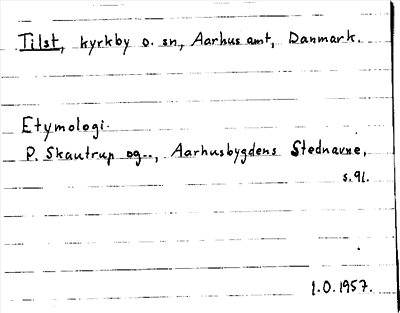 Tilst, kyrkby o. sn, Aarhus amt, Danmark.
Etymologi.
P. Skautrup og.., Aarhusbygdens Stednavne,
s.91.
1.0.1957.